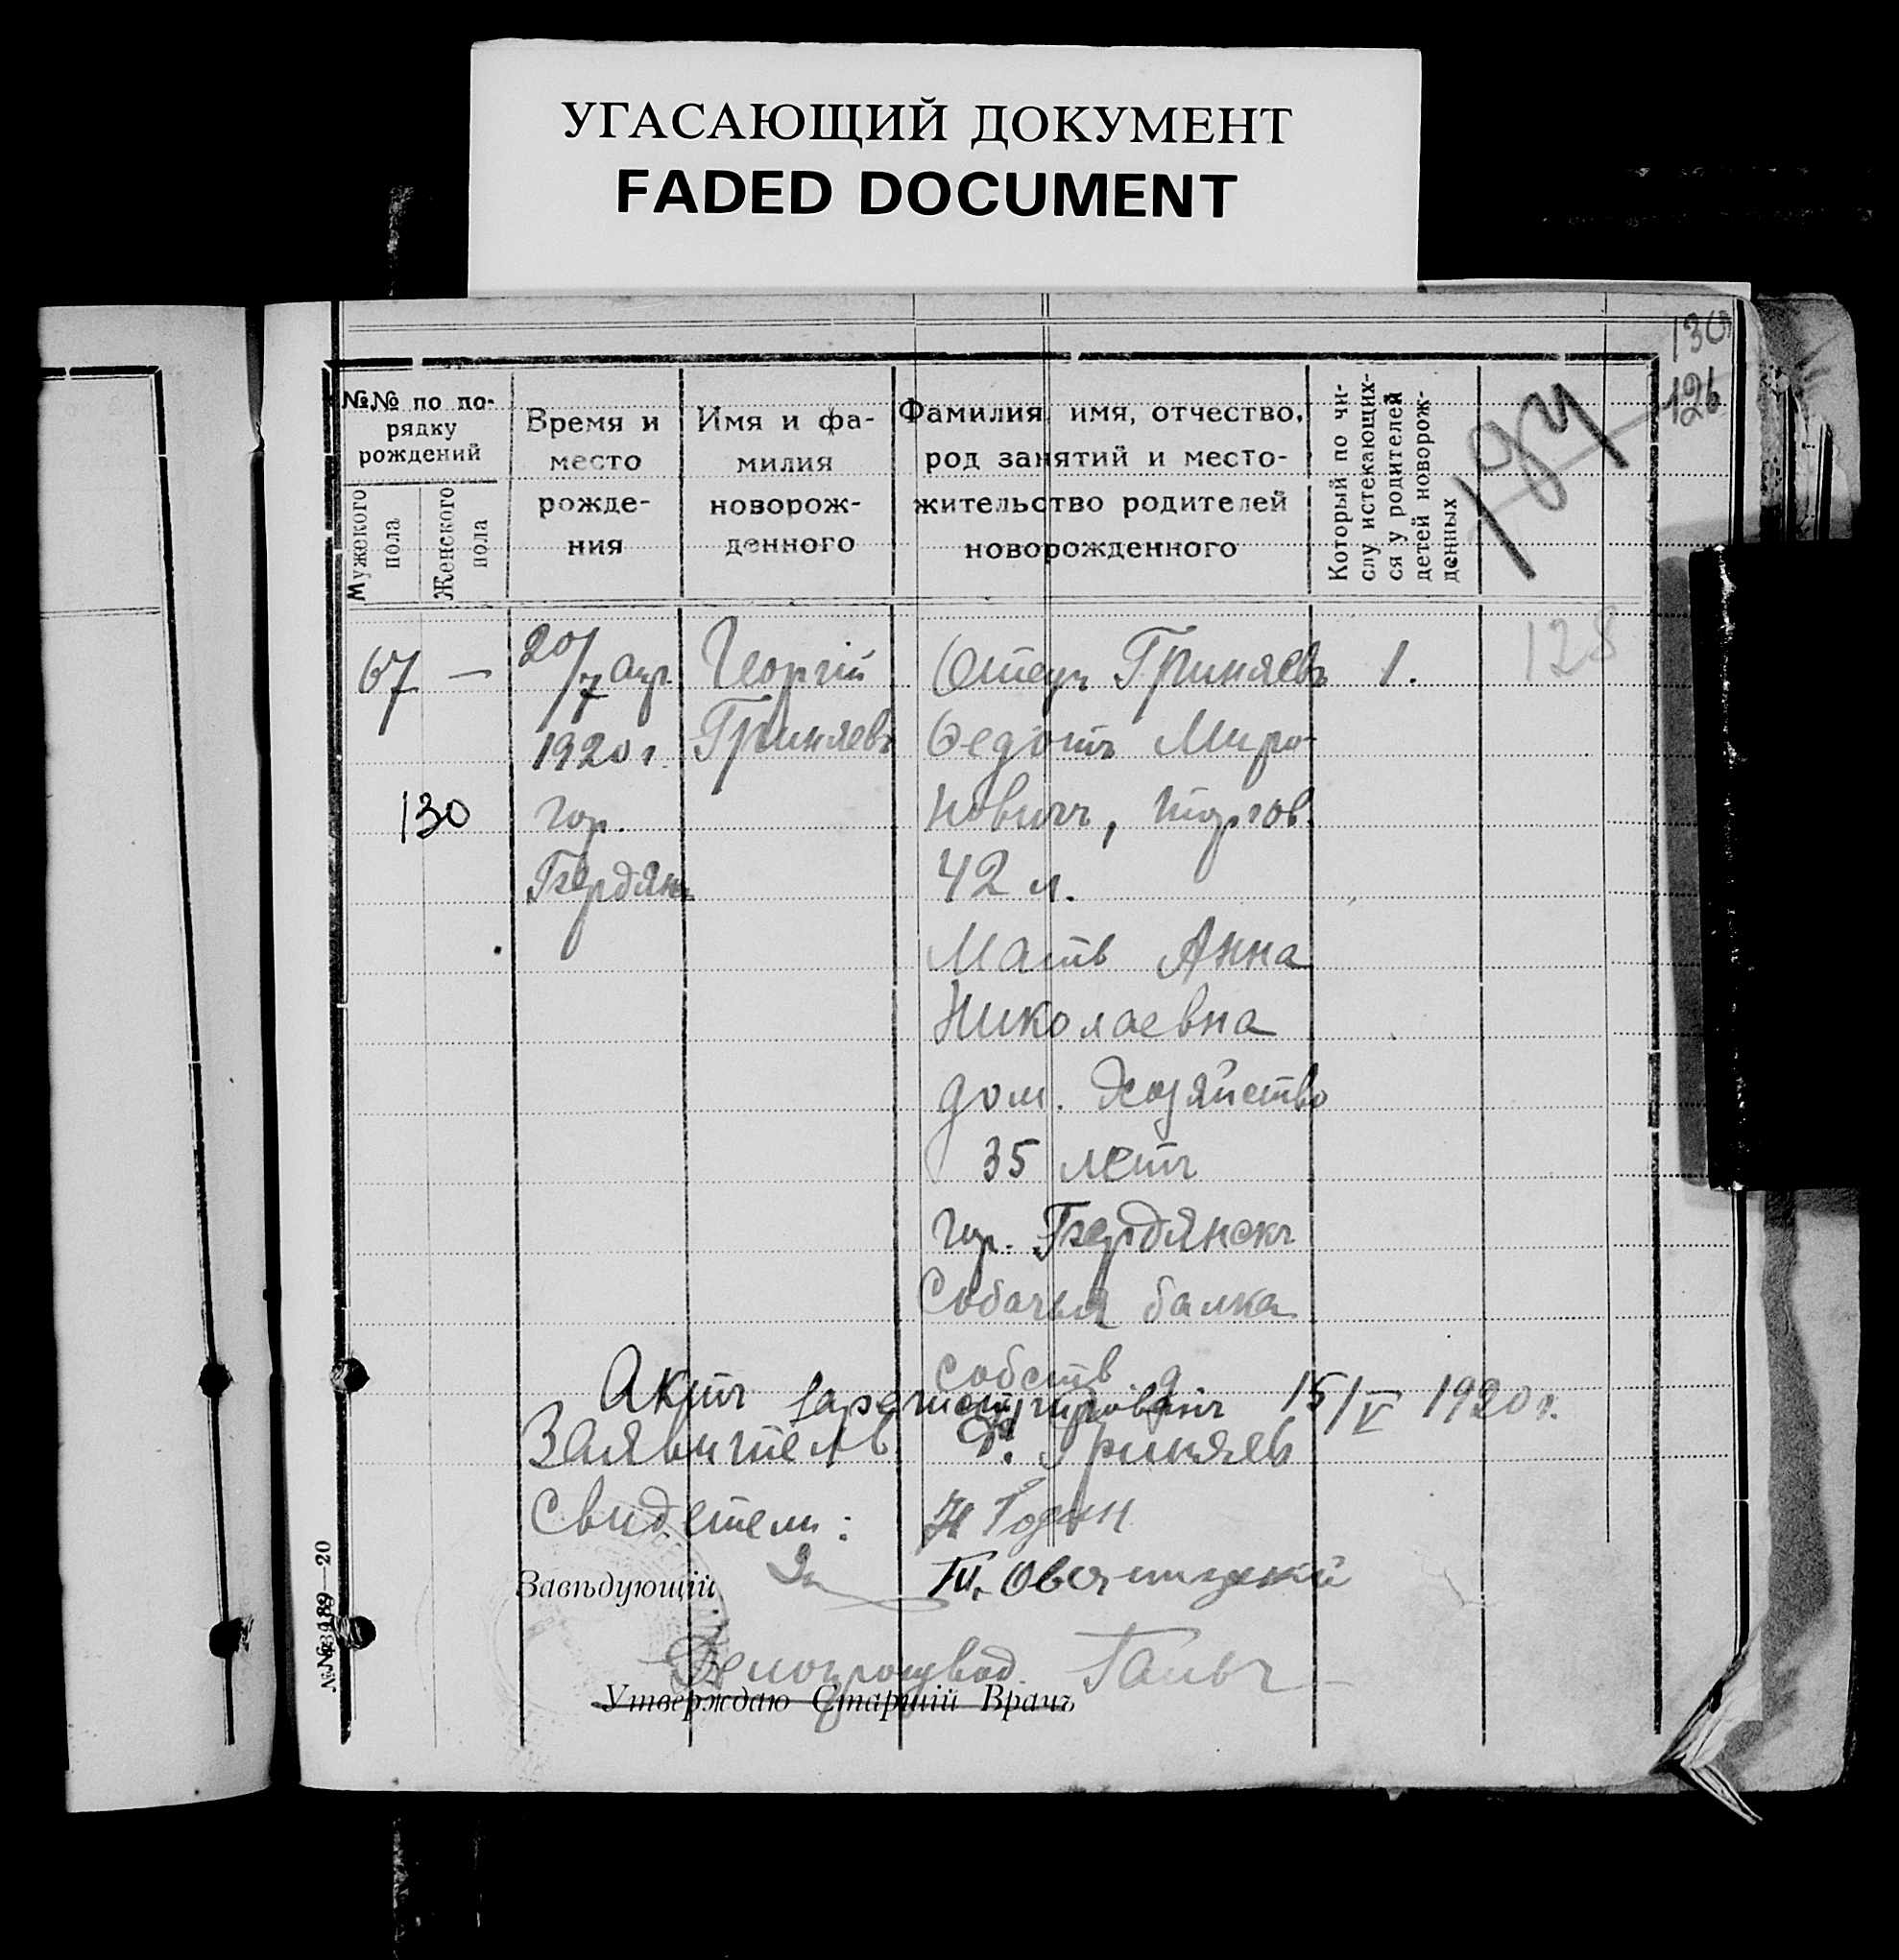 УГАСАЮЩИЙ ДОКУМЕНТ
FADED DOCUMENT
130
126
№№ по по-
рядку
рождений
Мужеского
пола
Женского
пола
Время и
место
рожде-
ния
Имя и фа-
милия
новорож-
денного
Фамилия, имя, отчество,
род занятий и место-
жительство родителей
новорожденного
Который по чи-
слу истекающих-
ся у родителей
детей новорож-
денных
128
67 —
20/7 апр.
1920 г.
гор.
Бердянъ
130
Георгій
Гриняевъ
Отецъ Гриняевъ
Федотъ Миро-
новичъ, торгов.
42 л.
Мать Анна
Николаевна
дом. хозяйство
35 летъ
гор. Бердянскъ
Собачья балка
собств. д.
1.
Актъ зарегистрированъ 15/V 1920 г.
Заявитель Ф. Гриняев
Свидетели:
Завѣдующій
Делопроизвод.
Утверждаю Старшій Врачъ